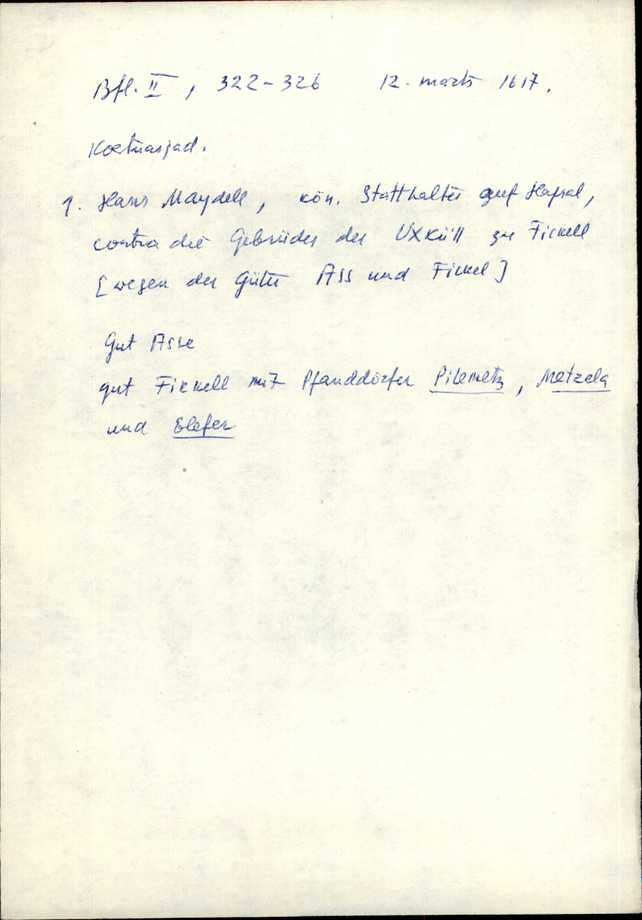 Bfl. II, 322-326 12. märts 1617.
Kostnasjad.
1. Hans Maydell, kön. Statthalter auf Hapsal,
contra die Gebrüder der ÜXküll zu Fickell
[wegen der Güter Ass und Fickel]
Gut Asse
gut Fickell mit Pfanddörfer Pilemetz, Metzela
und Elefer